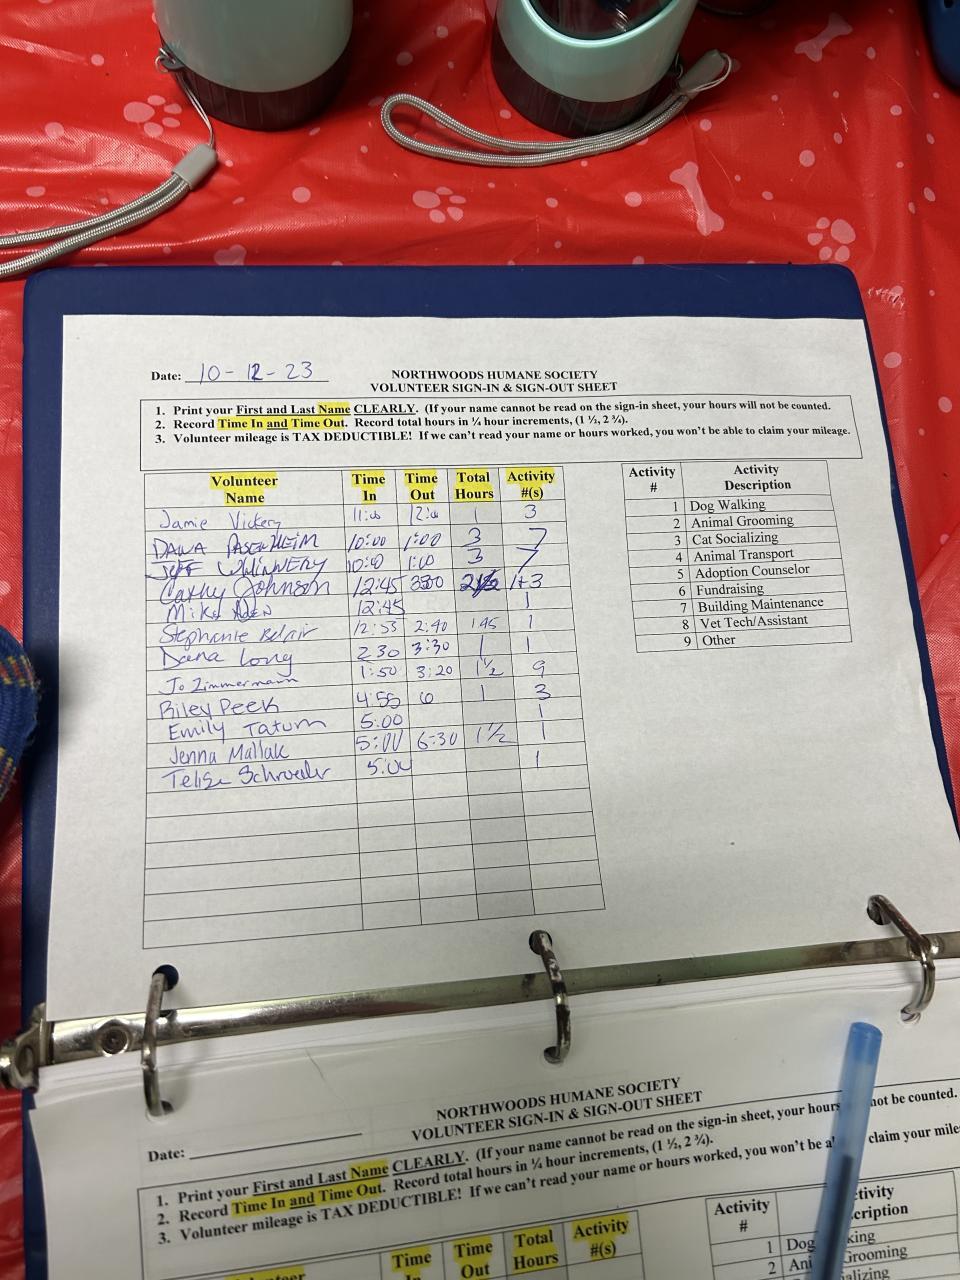 Date: 10-12-23
NORTHWOODS HUMANE SOCIETY
VOLUNTEER SIGN-IN & SIGN-OUT SHEET
1. Print your First and Last Name CLEARLY. (If your name cannot be read on the sign-in sheet, your hours will not be counted.
2. Record Time In and Time Out. Record total hours in ¼ hour increments, (1 ½, 2 ¾).
3. Volunteer mileage is TAX DEDUCTIBLE! If we can't read your name or hours worked, you won't be able to claim your mileage.
Volunteer Name Time In Time Out Total Hours Activity #(s)
Jamie Vickery 11:00 12:00 1 3
DANA 10:00 1:00 3 7
JEFF 10:00 1:00 3 7
Cathy Johnson 12:45 330 1+3
Mike 12:45 1
Stephanie Belair 12:53 2:40 145 1
Dana Long 230 3:30 1 1
Jo Zimmermann 1:50 3:20 1½ 9
Riley Peek 4:55 6 1 3
Emily Tatum 5:00 1
Jenna Mallak 5:00 6-30 1½ 1
Schroeder 5:00 1
Activity # Activity Description
1 Dog Walking
2 Animal Grooming
3 Cat Socializing
4 Animal Transport
5 Adoption Counselor
6 Fundraising
7 Building Maintenance
8 Vet Tech/Assistant
9 Other
NORTHWOODS HUMANE SOCIETY
VOLUNTEER SIGN-IN & SIGN-OUT SHEET
Date:
1. Print your First and Last Name CLEARLY. (If your name cannot be read on the sign-in sheet, your hours not be counted.
2. Record Time In and Time Out. Record total hours in ¼ hour increments, (1 ½, 2 ¾).
3. Volunteer mileage is TAX DEDUCTIBLE! If we can't read your name or hours worked, you won't be a claim your mile
Time Time Out Total Hours Activity #(s)
Activity # tivity cription
1 Dog king
2 Ani Grooming
alizing